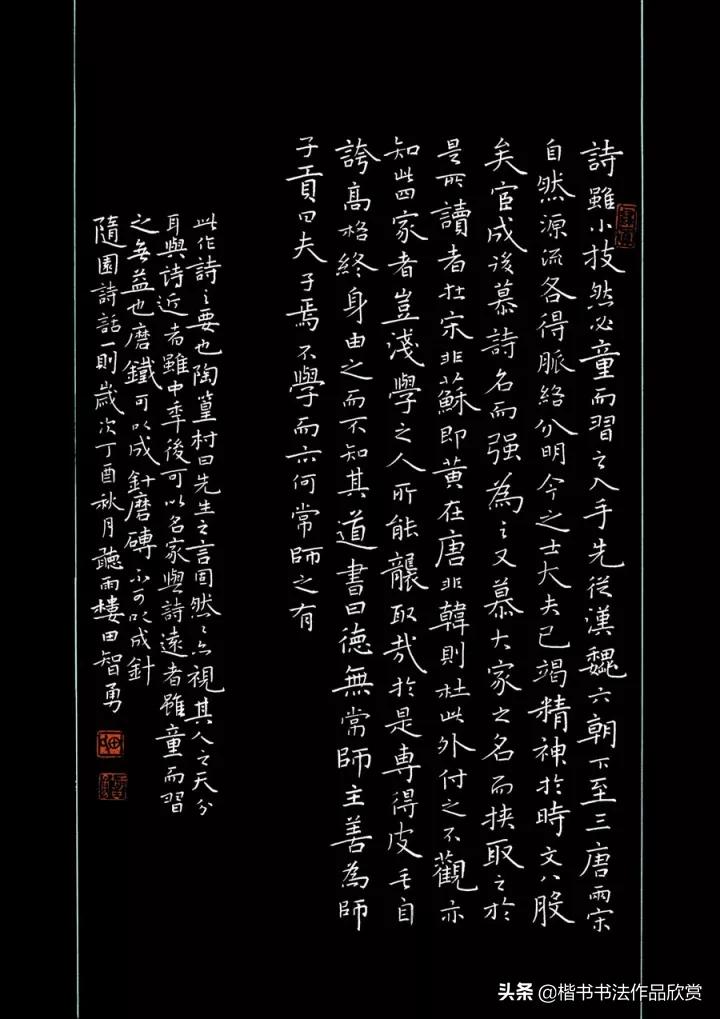 詩雖小技然必童而習之入手先從漢魏六朝下至三唐兩宋
自然源流各得脈絡分明今之士大夫已竭精神於時文八股
矣宦成後慕詩名而强為之又慕大家之名而挾取之於
是所讀者在宋非蘇即黄在唐非韓則杜此外付之不觀亦
知此四家者豈淺學之人所能襲取哉於是專得皮毛自
誇高格終身由之而不知其道書曰德無常師主善為師
子貢曰夫子焉不學而亦何常師之有
此作詩之要也陶篁村曰先生之言固然然亦視其人之天分
耳與诗近者雖中年後可以名家與詩遠者雖童而習
之無益也磨鐵可以成針磨磚不可以成針
隨園詩話一則歲次丁酉秋月聽雨樓田智勇
头条 @楷书书法作品欣赏